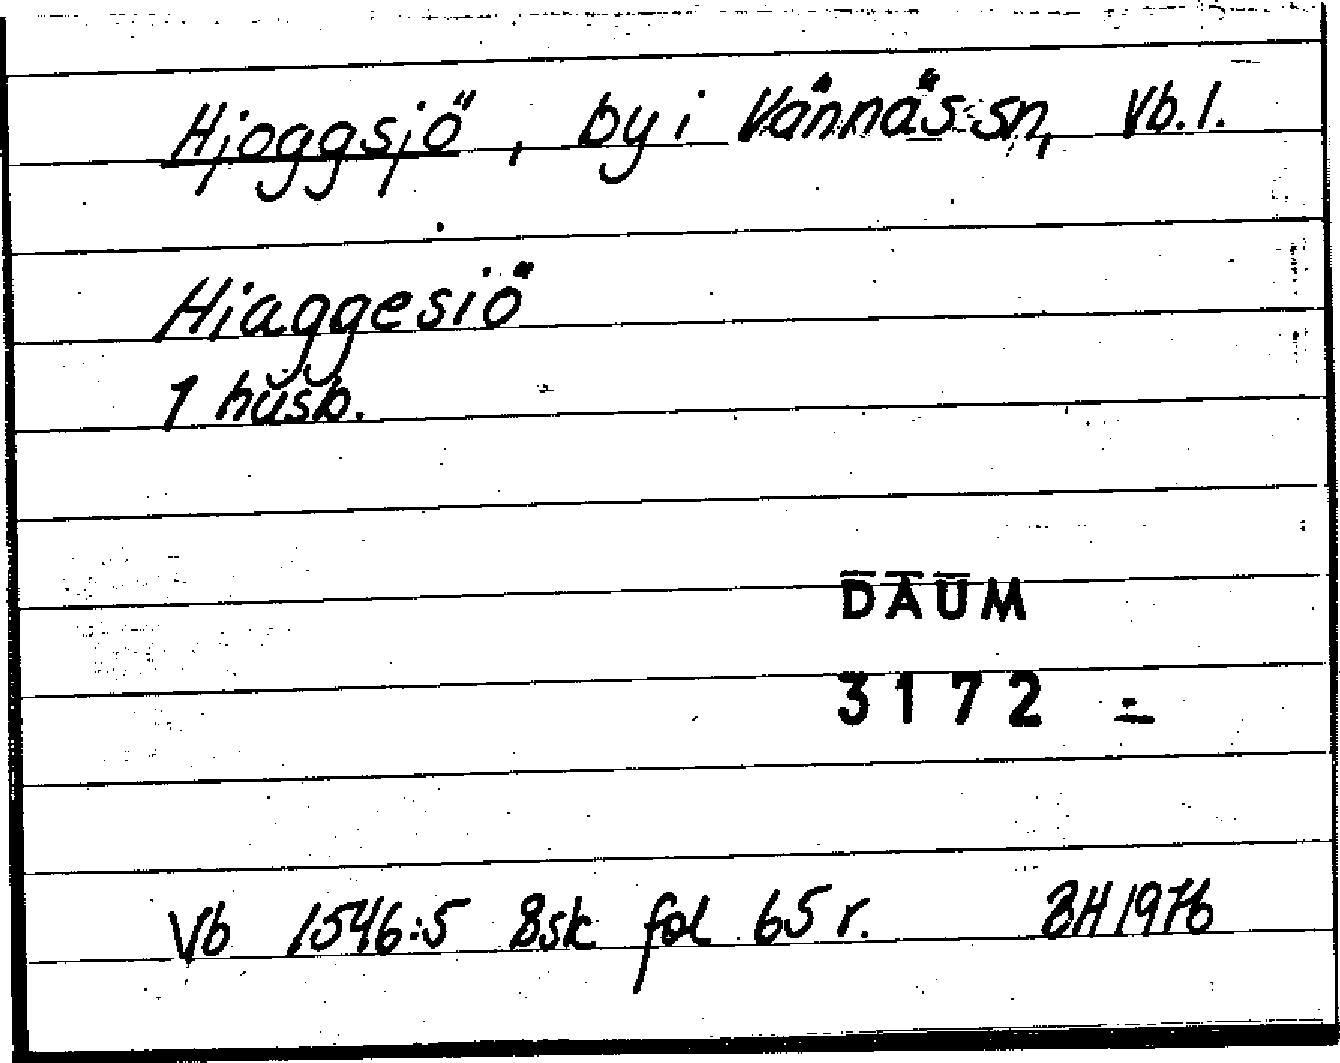 Hjoggsjö, by i Vännäs sn, Vb. l.
Hiaggesiö
1 husb.
DAUM
3172 -
Vb 1546:5 Bsk fol 65 r. BH 1976